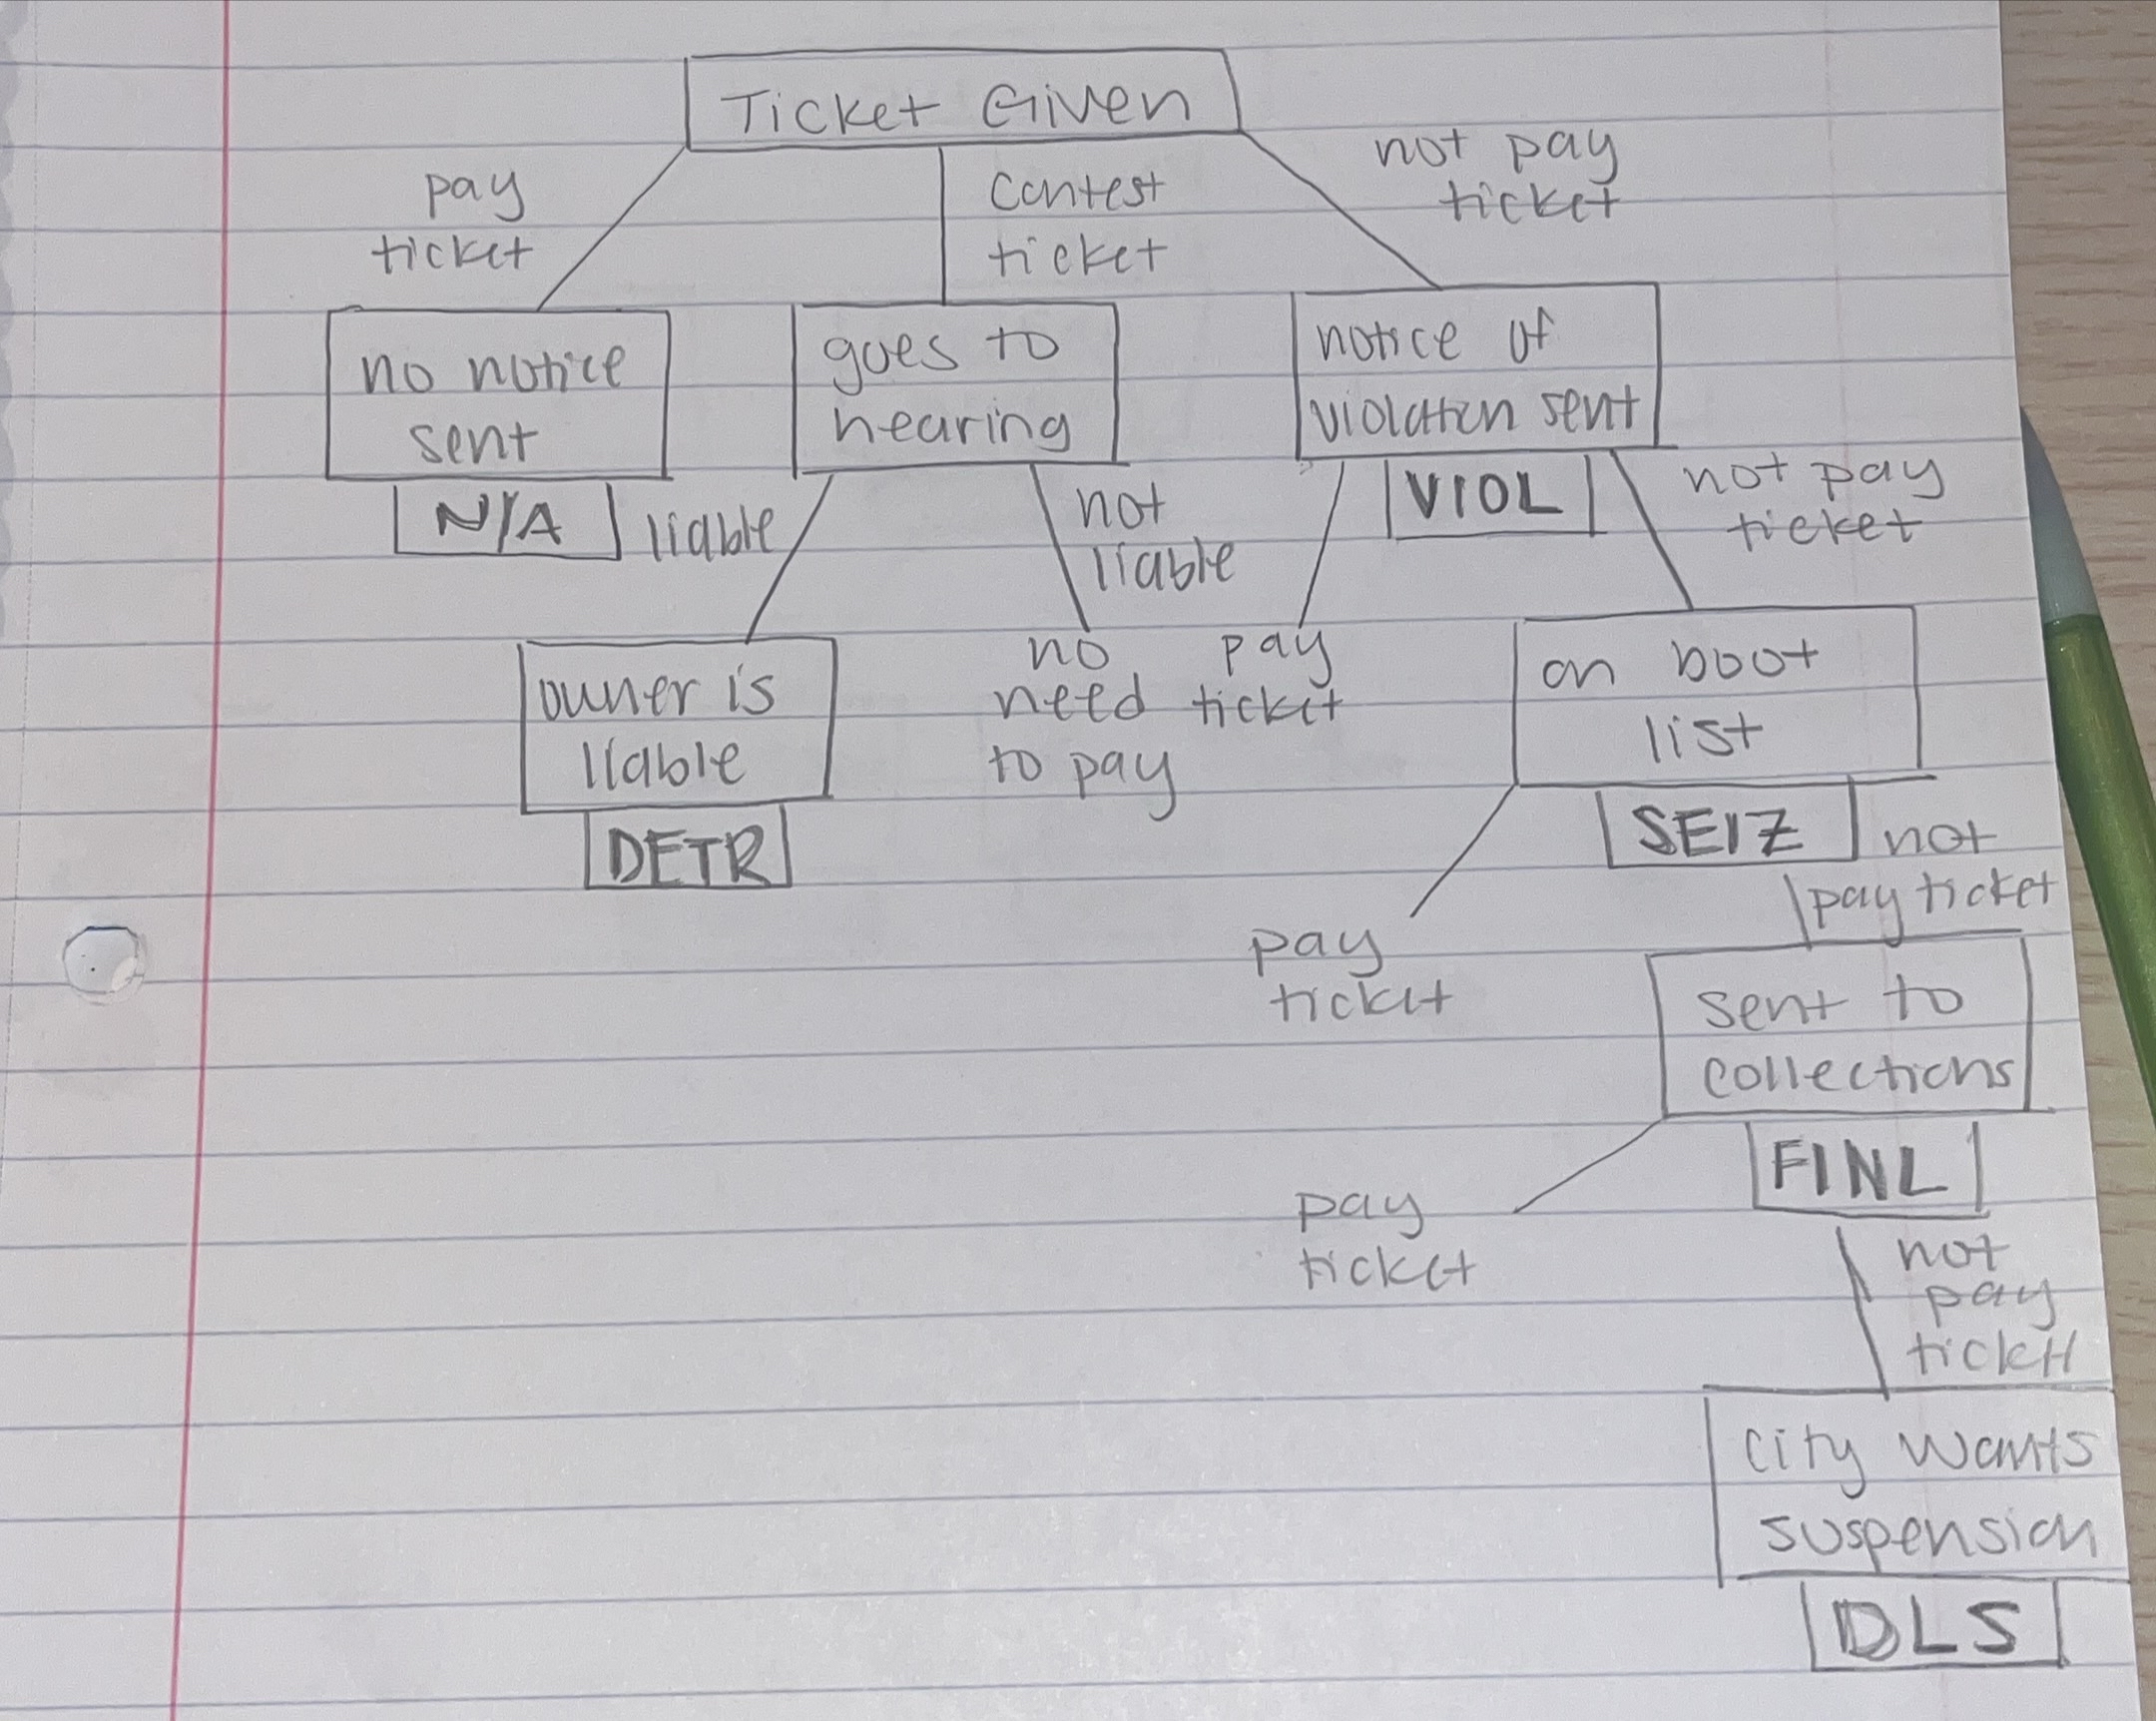 Ticket Given
pay
ticket
contest
ticket
not pay
ticket
no notice
sent
N/A
goes to
hearing
notice of
violation sent
VIOL
liable
not
liable
not pay
ticket
owner is
liable
DETR
no
need
to pay
pay
ticket
on boot
list
SEIZ
pay
ticket
not
pay ticket
sent to
collections
FINL
pay
ticket
not
pay
ticket
city wants
suspension
DLS